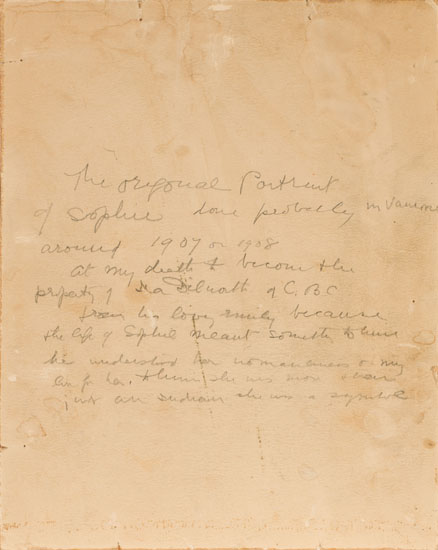 The origonal Portrait
of Sophie done probably in Vancou
around 1907 or 1908
At my death to become the
property of Ira Dilworth of C, BC
from his loving Emily because
the life of Sophie meant something to him
he understood her womanliness & my
love for her. To him she was more than
just an indian she was a symbol